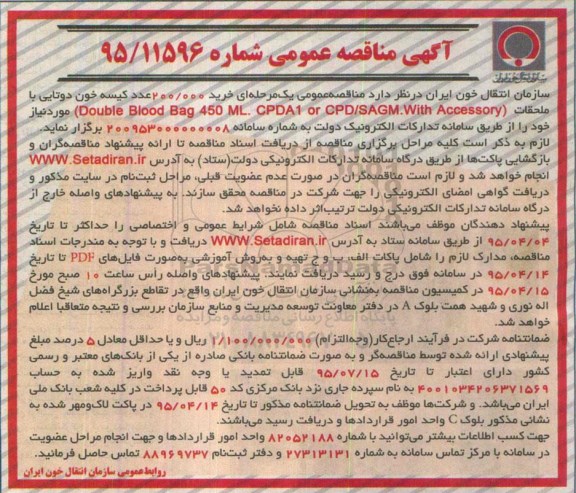 آگهی مناقصه عمومی شماره ۹۵/۱۱۵۹۶
سازمان انتقال خون ایران درنظر دارد مناقصه‌عمومی یک‌مرحله‌ای خرید ۲۰۰/۰۰۰عدد کیسه خون دوتایی با
ملحقات (Double Blood Bag 450 ML. CPDA1 or CPD/SAGM.With Accessory) موردنیاز
خود را از طریق سامانه تدارکات الکترونیک دولت به شماره سامانه ۲۰۰۹۵۳۰۰۰۰۰۰۰۰۸ برگزار نماید.
لازم به ذکر است کلیه مراحل برگزاری مناقصه از دریافت اسناد مناقصه تا ارائه پیشنهاد مناقصه‌گران و
بازگشایی پاکت‌ها از طریق درگاه سامانه تدارکات الکترونیکی دولت(ستاد) به آدرس www.Setadiran.ir
انجام خواهد شد و لازم است مناقصه‌گران در صورت عدم عضویت قبلی، مراحل ثبت‌نام در سایت مذکور و
دریافت گواهی امضای الکترونیکی را جهت شرکت در مناقصه محقق سازند. به پیشنهادهای واصله خارج از
درگاه سامانه تدارکات الکترونیکی دولت ترتیب‌اثر داده نخواهد شد.
پیشنهاد دهندگان موظف می‌باشند اسناد مناقصه شامل شرایط عمومی و اختصاصی را حداکثر تا تاریخ
۹۵/۰۴/۰۴ از طریق سامانه ستاد به آدرس www.Setadiran.ir دریافت و با توجه به مندرجات اسناد
مناقصه، مدارک لازم را شامل پاکات الف، ب و ج تهیه و به‌روش آموزشی به‌صورت فایل‌های PDF تا تاریخ
۹۵/۰۴/۱۴ در سامانه فوق درج و رسید دریافت نمایند. پیشنهادهای واصله رأس ساعت ۱۰ صبح مورخ
۹۵/۰۴/۱۵ در کمیسیون مناقصه به‌نشانی سازمان انتقال خون ایران واقع در تقاطع بزرگراه‌های شیخ فضل
اله نوری و شهید همت بلوک A در دفتر معاونت توسعه مدیریت و منابع سازمان بررسی و نتیجه متعاقبا اعلام
خواهد شد.
ضمانتنامه شرکت در فرآیند ارجاع‌کار(وجه‌التزام) ۱/۱۰۰/۰۰۰/۰۰۰ ریال و یا حداقل معادل ۵ درصد مبلغ
پیشنهادی ارائه شده توسط مناقصه‌گر و به صورت ضمانتنامه بانکی صادره از یکی از بانک‌های معتبر و رسمی
کشور دارای اعتبار تا تاریخ ۹۵/۰۷/۱۵ قابل تمدید یا وجه نقد واریز شده به حساب
۴۰۰۱۰۳۴۲۰۶۳۷۱۵۶۹ به نام سپرده جاری نزد بانک مرکزی کد ۵۰ قابل پرداخت در کلیه شعب بانک ملی
ایران می‌باشد. و شرکت‌ها موظف به تحویل ضمانتنامه مذکور تا تاریخ ۹۵/۰۴/۱۴ در پاکت لاک‌ومهر شده به
نشانی مذکور بلوک C واحد امور قراردادها و دریافت رسید می‌باشند.
جهت کسب اطلاعات بیشتر می‌توانید با شماره ۸۲۰۵۲۱۸۸ واحد امور قراردادها و جهت انجام مراحل عضویت
در سامانه با مرکز تماس سامانه به شماره ۲۷۳۱۳۱۳۱ و دفتر ثبت‌نام ۸۸۹۶۹۷۳۷ تماس حاصل فرمائید.
روابط‌عمومی سازمان انتقال خون ایران